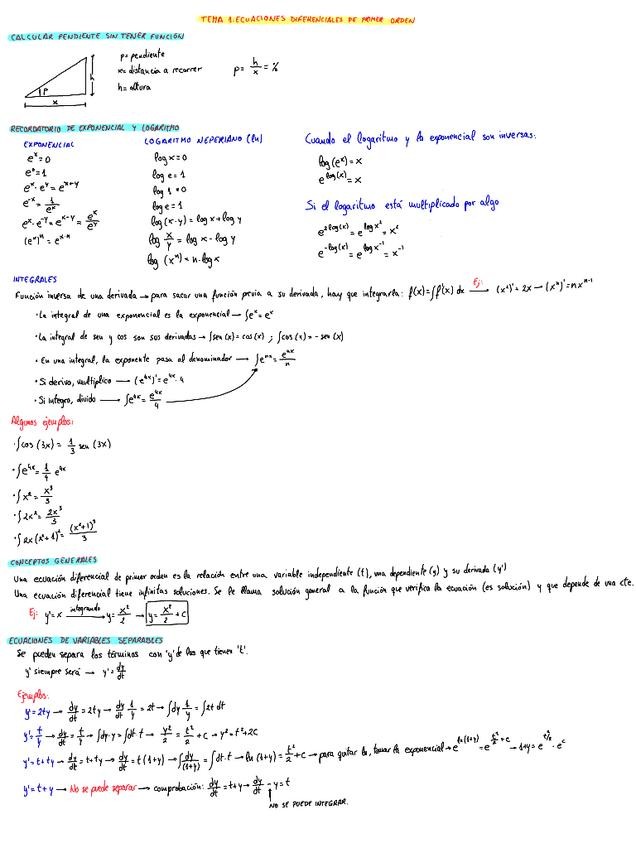 TEMA 1: ECUACIONES DIFERENCIALES DE PRIMER ORDEN
CALCULAR PENDIENTE SIN TENER FUNCIÓN
p = pendiente
x = distancia a recorrer
h = altura
p = h/x = %
p
h
x
RECORDATORIO DE EXPONENCIAL Y LOGARITMO
EXPONENCIAL
e^x = 0
e^0 = 1
e^x · e^y = e^{x+y}
e^{-x} = 1/e^x
e^x · e^{-y} = e^{x-y} = e^x/e^y
(e^x)^n = e^{x·n}
LOGARITMO NEPERIANO (ln)
log x = 0
log e = 1
log 1 = 0
log e = 1
log (x·y) = log x + log y
log x/y = log x - log y
log (x^n) = n · log x
Cuando el logaritmo y la exponencial son inversas:
log (e^x) = x
e^{log(x)} = x
Si el logaritmo está multiplicado por algo
e^{2log(x)} = e^{log x^2} = x^2
e^{-log(x)} = e^{log x^{-1}} = x^{-1}
INTEGRALES
Función inversa de una derivada → para sacar una función previa a su derivada, hay que integrarla: f(x) = ∫f'(x) dx Ej: → (x^2)' = 2x → (x^n)' = nx^{n-1}
· La integral de una exponencial es la exponencial → ∫e^x = e^x
· La integral de sen y cos son sus derivadas → ∫sen(x) = cos(x) ; ∫cos(x) = -sen(x)
· En una integral, la exponente pasa al denominador → ∫e^{nx} = e^{nx}/n
· Si derivo, multiplico → (e^{4x})' = e^{4x} · 4
· Si integro, divido → ∫e^{4x} = e^{4x}/4
Algunos ejemplos:
· ∫cos (3x) = 1/3 sen (3x)
· ∫e^{4x} = 1/4 e^{4x}
· ∫x^2 = x^3/3
· ∫2x^2 = 2x^3/3
· ∫2x(x^2+1)^2 = (x^2+1)^3/3
CONCEPTOS GENERALES
Una ecuación diferencial de primer orden es la relación entre una variable independiente (t), una dependiente (y) y su derivada (y')
Una ecuación diferencial tiene infinitas soluciones. Se le llama solución general a la función que verifica la ecuación (es solución) y que depende de una cte.
Ej: y' = x integrando → y = x^2/2 → y = x^2/2 + c
ECUACIONES DE VARIABLES SEPARABLES
Se pueden separa los términos con 'y' de los que tienen 't'.
y' siempre será → y' = dy/dt
Ejemplos:
y' = 2ty → dy/dt = 2ty → dy/dt 1/y = 2t → ∫dy 1/y = ∫2t dt
y' = t/y → dy/dt = t/y → ∫dy·y = ∫dt·t → y^2/2 = t^2/2 + c → y^2 = t^2 + 2C
y' = t+ty → dy/dt = t+ty → dy/dt = t(1+y) → ∫dy/(1+y) = ∫dt·t → ln(1+y) = t^2/2 + c → para quitar ln, tomar la exponencial → e^{ln(1+y)} = e^{t^2/2 + c} → 1+y = e^{t^2/2} · e^c
y' = t+y → No se puede separar → comprobación: dy/dt = t+y → dy/dt - y = t
NO SE PUEDE INTEGRAR.